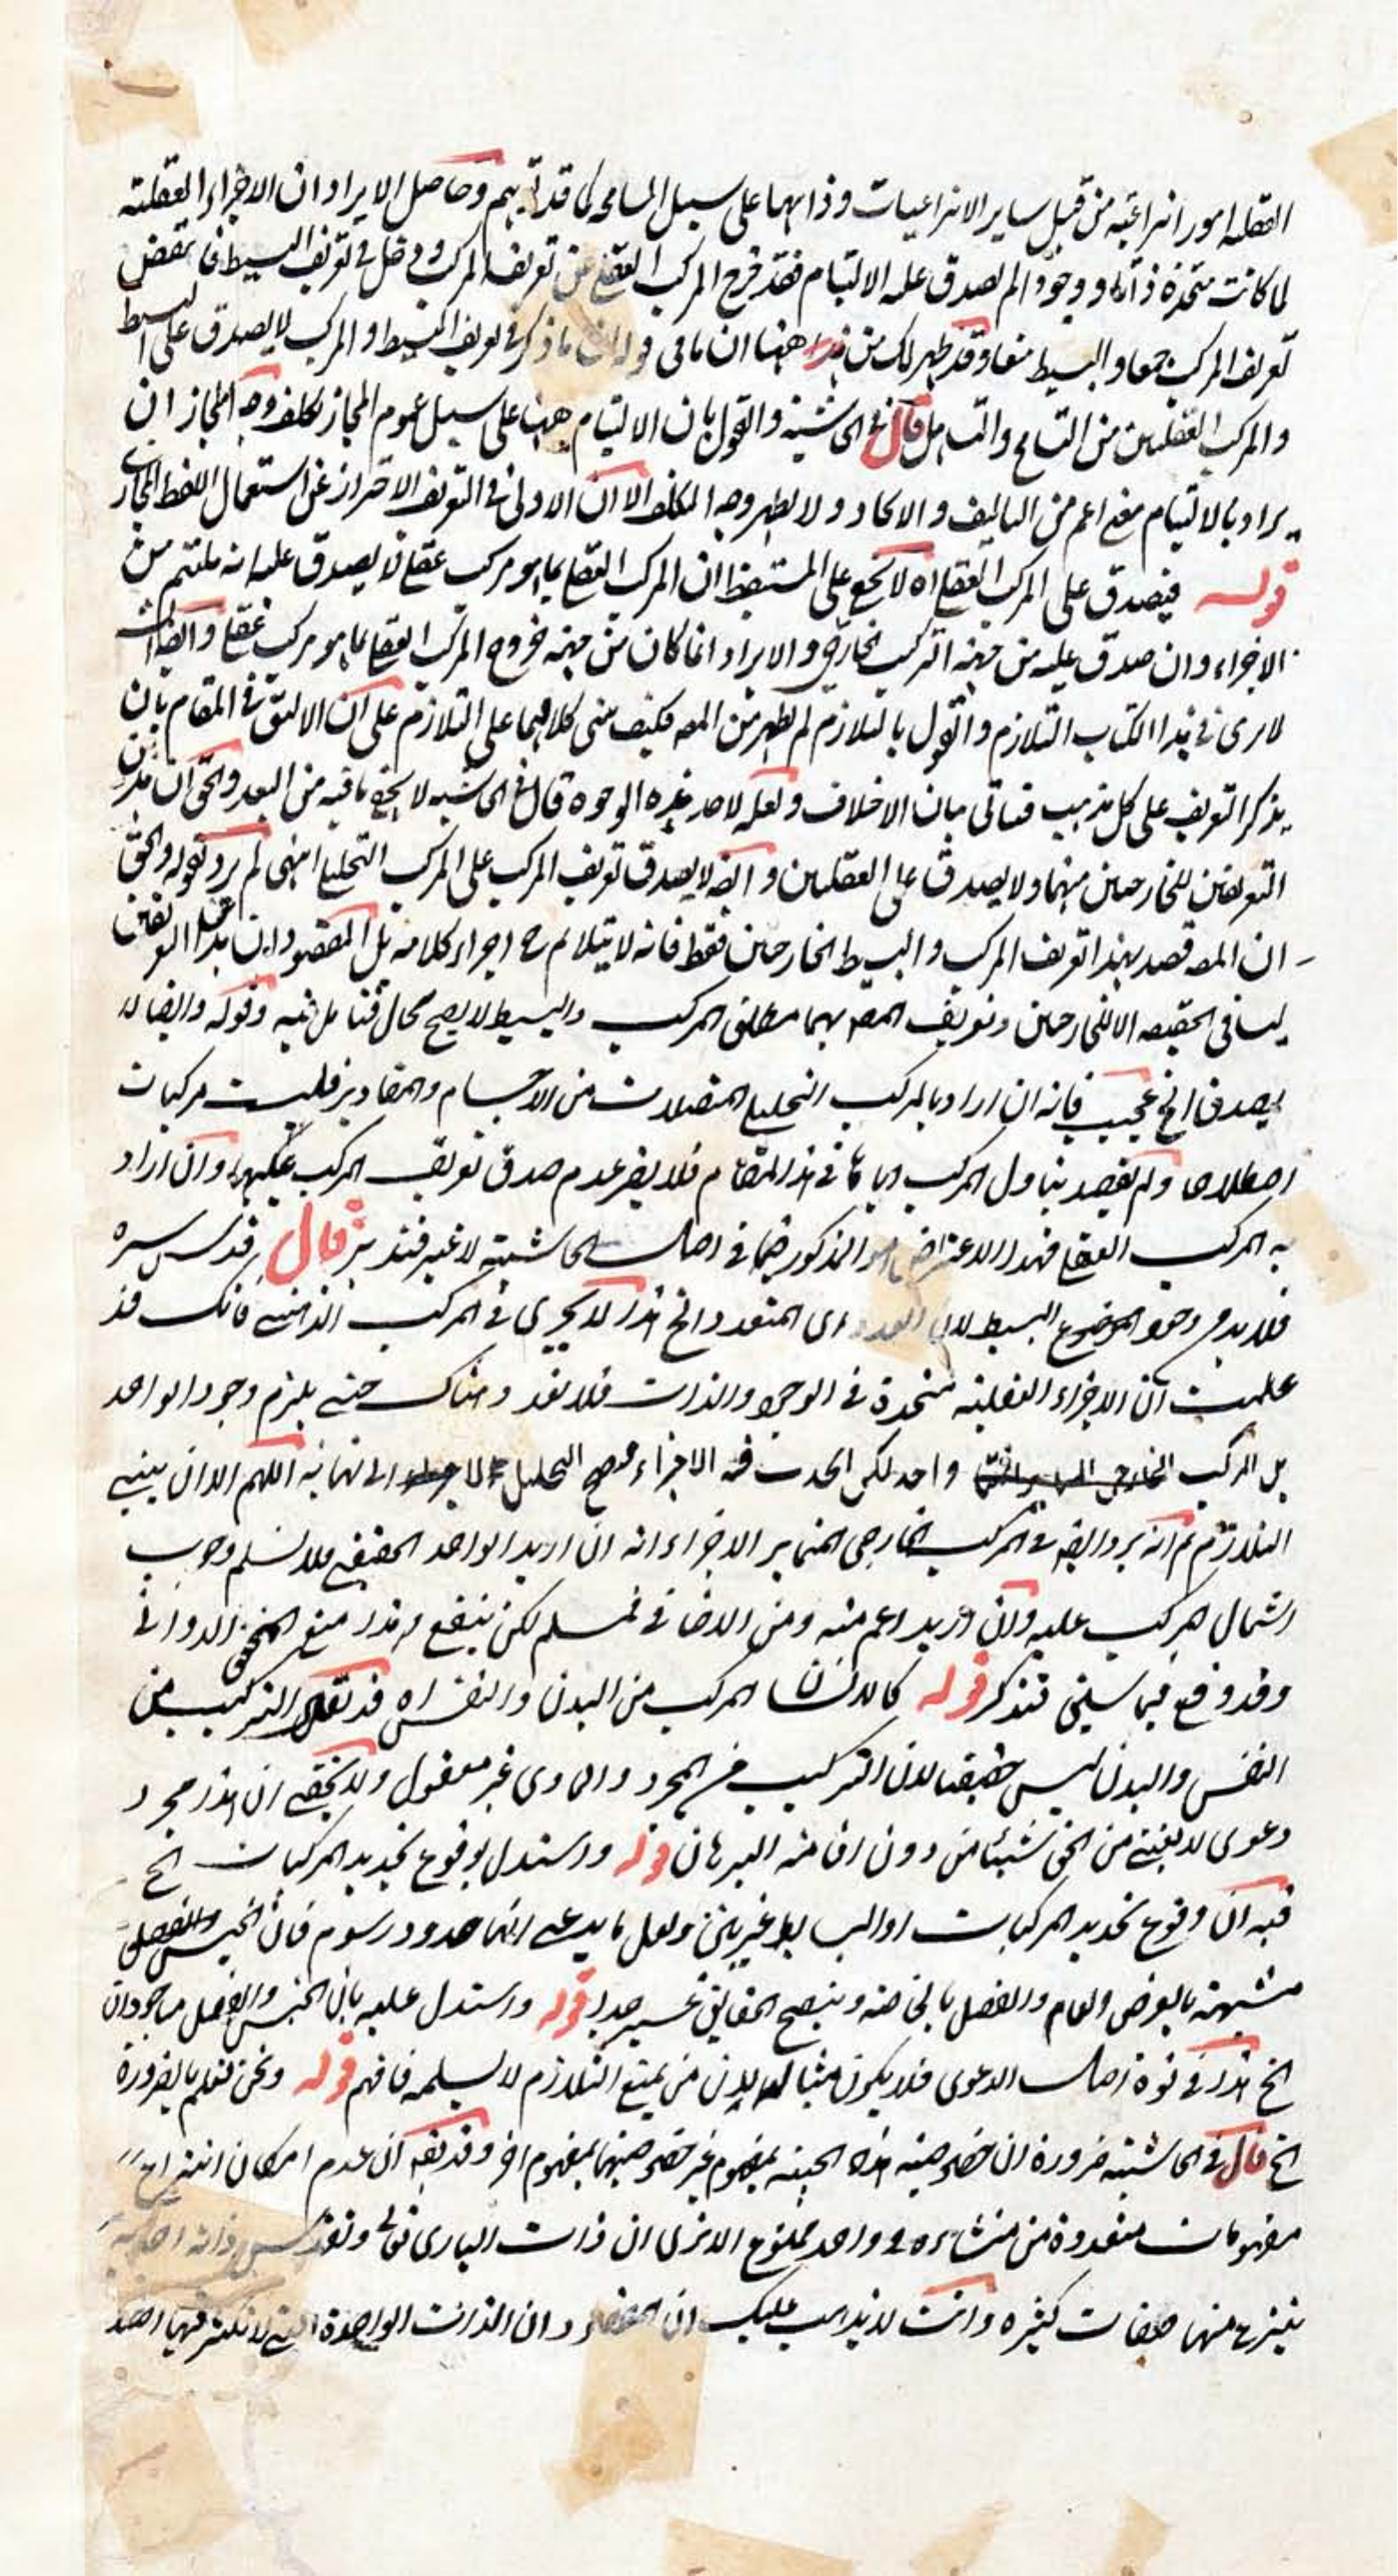 العقلية امور انتزاعية من قبيل ساير الانتزاعيات وذاتهما على سبيل المسامحة كما قد وحاصل الايراد ان الاجزاء العقلية
لما كانت متحدة ذاتا ووجودا لم يصدق عليه الالتيام فقد خرج المركب العقلي عن تعريف المركب ودخل في تعريف البسيط فانتقض
تعريف المركب جمعا والبسيط منعا وقد ظهر لك من هذا ههنا ان ما في قوله ان ما ذكر في تعريف البسيط او المركب لا يصدق على البسيط
والمركب العقليين من التسامح والتساهل قال في الحاشية والقول بان الالتيام ههنا على سبيل عموم المجاز تكلف وجه المجاز ان
يراد بالالتيام معنى اعم من التاليف والاتحاد ولا يظهر وجه التكلف الا ان الاولى في التعريف الاحتراز عن استعمال اللفظ المجازي
قوله فيصدق على المركب العقلي اه لا يخفى على المستيقظ ان المركب العقلي بما هو مركب عقلي لا يصدق عليه انه ملتئم من
الاجزاء وان صدق عليه من جهة التركيب الخارجي والايراد انما كان من جهة خروج المركب العقلي بما هو مركب عقلي وايضا
لا يرى في هذا الكتاب التلازم والقول بالتلازم لم يظهر من المصـ فكيف يبنى كلامهما على التلازم على ان الاليق في المقام بان
يذكر التعريف على كل مذهب فيأتي بيان الاختلاف ولعله لاحد هذه الوجوه قال في الحاشية لا يخفى ما فيه من البعد والحق ان هذين
التعريفين للخارجيين منهما ولا يصدق على العقليين وايضا لا يصدق تعريف المركب على المركب التحليلي انتهى لم يرد بقوله والحق
ان المصـ قصد بهذا تعريف المركب والبسيط الخارجيين فقط فانه لا يتلائم ح اجزاء كلامه بل المقصود ان هذين التعريفين
ليسا في الحقيقة الا للخارجيين وتعريف المصـ بهما مطلق المركب والبسيط لا يصح بحال فتامل فيه وقوله وايضا لا
يصدق الخ عجيب فانه ان اراد بالمركب التحليلي المتصلات من الاجسام والمقادير فليست مركبات
اصطلاحا ولم يقصد تناول المركب اياها في هذا المقام فلا يضر عدم صدق تعريف المركب عليها وان اراد
به المركب العقلي فهذا الاعتراض هو المذكور ضمنا في اصل الحاشية لا غير فتدبر قال قدس سره
فلا بد في وجود الموضوع البسيط لان العدد اى المتعدد الخ هذا لا يجرى في المركب الذهني فانك قد
علمت ان الاجزاء العقلية متحدة في الوجود والذات فلا تعدد هناك حتى يلزم وجود الواحد
بل المركب الخارجي واحد لكن الاجزاء التحليل الى نهاية اللهم الا ان يبنى
التلازم ثم انه يرد ايضا في المركب الخارجي المتمايز الاجزاء انه ان اريد الواحد الحقيقي فلا نسلم وجوب
اشتمال المركب عليه وان اريد اعم منه ومن الاضافي فمسلم لكن ينفع وهذا منع المحقق الدواني
وقد وقع فيما سيجئ فتذكر قوله كالانسان المركب من البدن والنفس اه قد يقال التركيب من
النفس والبدن ليس حقيقيا لان التركيب من المجرد والمادي غير معقول ولا يخفى ان هذا مجرد
دعوى لا يغنى من الحق شيئا من دون اقامة البرهان قوله واستدل بوقوع تحديد المركبات الخ
فيه ان وقوع تحديد المركبات او البسايط غير بين ولعل ما يدعى انها حدود رسوم فان الجنس والفصل
مشتبهة بالعرض العام والفصل بالخاصة وتنقيح الحقايق عسير جدا قوله واستدل عليه بان الجنس والفصل ماخوذان
الخ هذا في قوة اصل الدعوى فلا يكون مثبتا له لان من يمنع التلازم لا يسلمه فافهم قوله ونحن نعلم بالضرورة
الخ قال في الحاشية ضرورة ان خصوصية هذه الحيثية بمفهوم غير خصوصيتها بمفهوم اخر وقد يقال ان عدم امكان انتزاع
مفهومات متعددة من منشاء واحد ممنوع الا ترى ان ذات البارى تعالى وتقدس ذاته احدية
ينتزع منها صفات كثيرة وانت لا يذهب عليك ان المقصود ان الذات الواحدة التي لا تكثر فيها اصلا